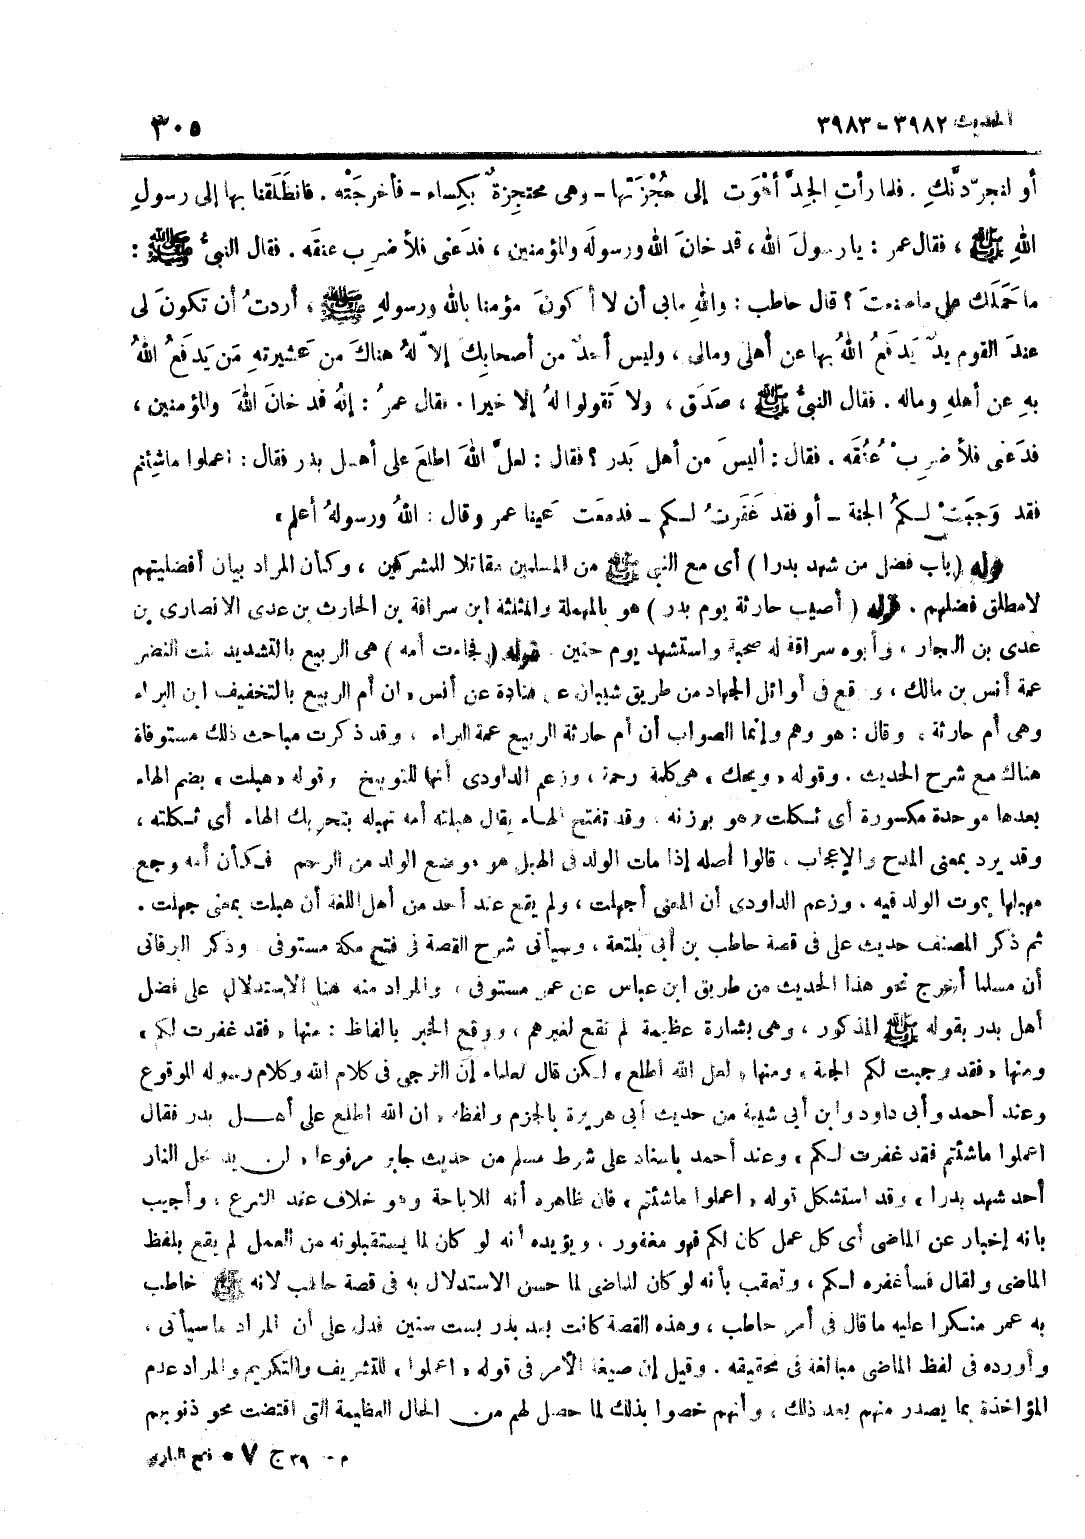 الحديث ٣٩٨٢ - ٣٩٨٣
٣٠٥
أو لنجرّدنَّكِ . فلما رأتِ الجِدَّ أهْوَت إلى حُجْزَتها - وهى محتجِزةٌ بكِساء - فأخرجَتْه . فانطَلَقنا بها إلى رسولِ
اللهِ ﷺ ، فقال عمر : يا رسولَ الله ، قد خانَ الله ورسولَه والمؤمنين ، فدَعنى فلأضرِب عنقَه . فقال النبىُّ ﷺ :
ما حَمَلَك على ما صنعتَ ؟ قال حاطب : واللهِ مابى أن لا أكونَ مؤمنا بالله ورسولهِ ﷺ ، أردتُ أن تكونَ لى
عندَ القوم يدٌ يَدفَعُ اللهُ بها عن أهلى ومالى ، وليس أحدٌ من أصحابِك إلاّ لهُ هناكَ من عَشيرتهِ مَن يَدفَعُ اللهُ
بهِ عن أهلهِ وماله . فقال النبىُّ ﷺ ، صَدَق ، ولا تَقولوا لهُ إلا خيرا . فقال عمرُ : إنهُ قد خانَ اللهَ والمؤمنين ،
فدَعنى فلأضرِبْ عُنُقَه . فقال : أليسَ من أهل بَدر ؟ فقال : لعلَّ اللهَ اطلعَ على أهل بدر فقال : اعملوا ماشِئتم
فقد وَجَبَتْ لكمُ الجنة - أو فقد غَفَرتُ لكم - فدمعَت عَينا عمر وقال : اللهُ ورسولهُ أعلم »
قوله ( باب فضل من شهد بدرا ) أى مع النبى ﷺ من المسلمين مقاتلا للمشركين ، وكأن المراد بيان أفضليتهم
لا مطلق فضلهم . قوله ( أصيب حارثة يوم بدر ) هو بالمهملة والمثلثة ابن سراقة بن الحارث بن عدى الانصارى بن
عدى بن النجار ، وأبوه سراقة له صحبة واستشهد يوم حنين . قوله ( فجاءت أمه ) هى الربيع بالتشديد بنت النضر
عمة أنس بن مالك ، ووقع فى أوائل الجهاد من طريق شيبان عن قتادة عن أنس « ان أم الربيع بالتخفيف ابن البراء
وهى أم حارثة » وقال : هو وهم وإنما الصواب أن أم حارثة الربيع عمة البراء ، وقد ذكرت مباحث ذلك مستوفاة
هناك مع شرح الحديث . وقوله « ويحك » هى كلمة رحمة ، وزعم الداودى أنها للتوبيخ وقوله « هبلت » بضم الهاء
بعدها موحدة مكسورة أى ثكلت وهو بوزنه . وقد تفتح الهاء يقال هبلته أمه تهبله بتحريك الهاء أى ثكلته ،
وقد يرد بمعنى المدح والإعجاب ، قالوا أصله إذا مات الولد فى الهبل هو موضع الولد من الرحم فكأن أمه وجع
مهبلها بموت الولد فيه . وزعم الداودى أن المعنى أجهلت ، ولم يقع عند أحد من أهل اللغة أن هبلت بمعنى جهلت .
ثم ذكر المصنف حديث على فى قصة حاطب بن أبى بلتعة ، وسيأتى شرح القصة فى فتح مكة مستوفى وذكر البرقانى
أن مسلما أخرج نحو هذا الحديث من طريق ابن عباس عن عمر مستوفى ، والمراد منه هنا الاستدلال على فضل
أهل بدر بقوله ﷺ المذكور ، وهى بشارة عظيمة لم تقع لغيرهم ، ووقع الخبر بالفاظ : منها « فقد غفرت لكم »
ومنها « فقد وجبت لكم الجنة » ومنها « لعل الله اطلع » لكن قال العلماء إن الترجى فى كلام الله وكلام رسوله للوقوع
وعند أحمد وأبى داود وابن أبى شيبة من حديث أبى هريرة بالجزم ولفظه « ان الله اطلع على أهل بدر فقال
اعملوا ماشئتم فقد غفرت لكم » وعند أحمد باسناد على شرط مسلم من حديث جابر مرفوعا « لن يدخل النار
أحد شهد بدرا » وقد استشكل قوله « اعملوا ماشئتم » فان ظاهره أنه للاباحة وهو خلاف عقد الشرع ، وأجيب
بانه إخبار عن الماضى أى كل عمل كان لكم فهو مغفور ، ويؤيده أنه لو كان لما يستقبلونه من العمل لم يقع بلفظ
الماضى ولقال فسأغفره لكم ، وتعقب بأنه لو كان للماضى لما حسن الاستدلال به فى قصة حاطب لانه ﷺ خاطب
به عمر منكرا عليه ماقال فى أمر حاطب ، وهذه القصة كانت بعد بدر بست سنين فدل على أن المراد ماسيأتى ،
وأورده فى لفظ الماضى مبالغة فى تحقيقه . وقيل إن صيغة الأمر فى قوله « اعملوا » للتشريف والتكريم والمراد عدم
المؤاخذة بما يصدر منهم بعد ذلك ، وأنهم خصوا بذلك لما حصل لهم من الحال العظيمة التى اقتضت محو ذنوبهم
م - ٣٩ ج ٧ * فتح البارى